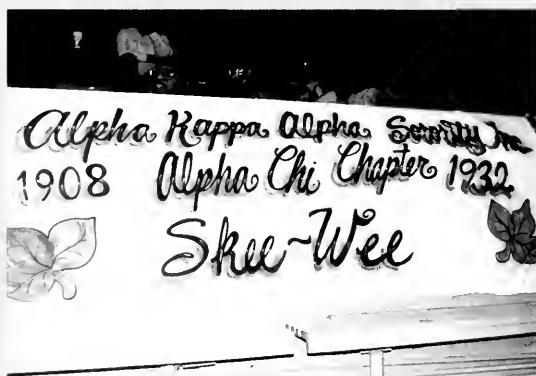 Alpha Kappa Alpha Sorority Inc.
1908 Alpha Chi Chapter 1932
Skee~Wee